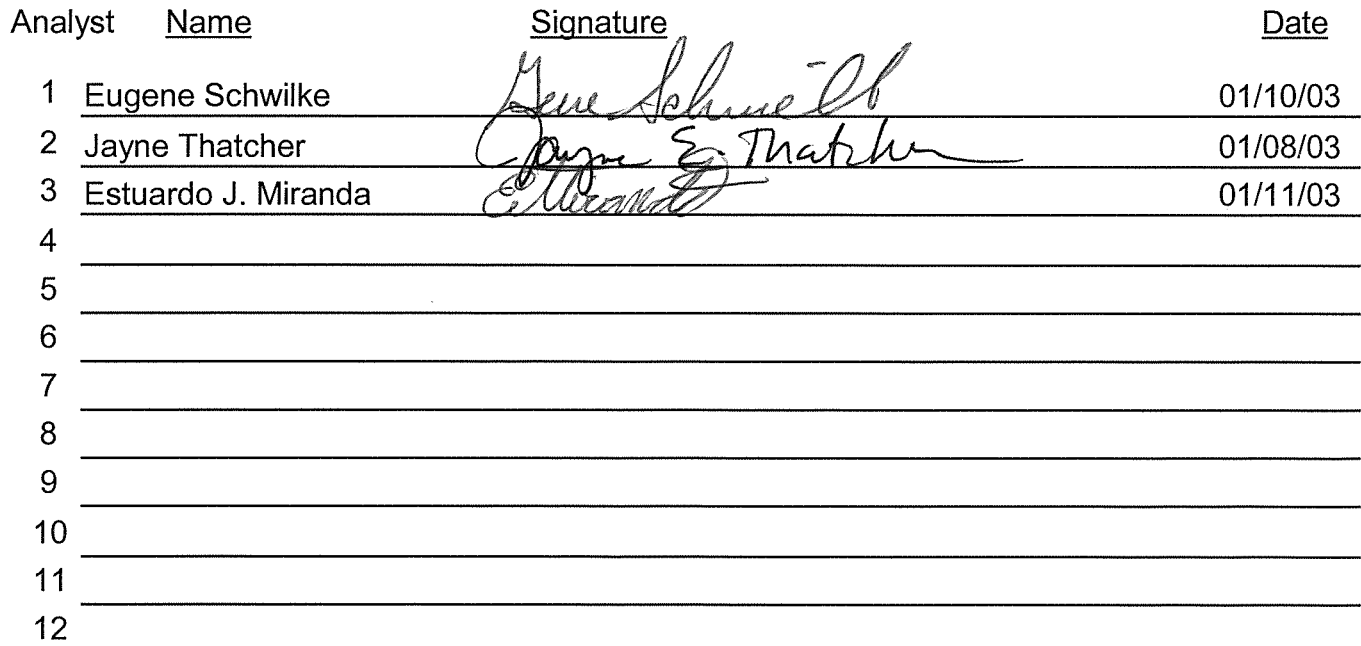 Analyst Name Signature Date
1 Eugene Schwilke Gene Schwilke 01/10/03
2 Jayne Thatcher Jayne E. Thatcher 01/08/03
3 Estuardo J. Miranda E. Miranda 01/11/03
4
5
6
7
8
9
10
11
12